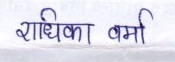 राधिका वर्मा